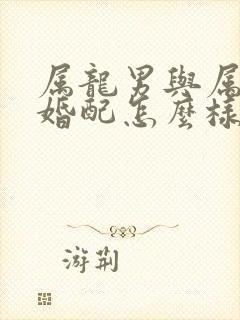 属龍男與属
婚配怎麼樣
游荆